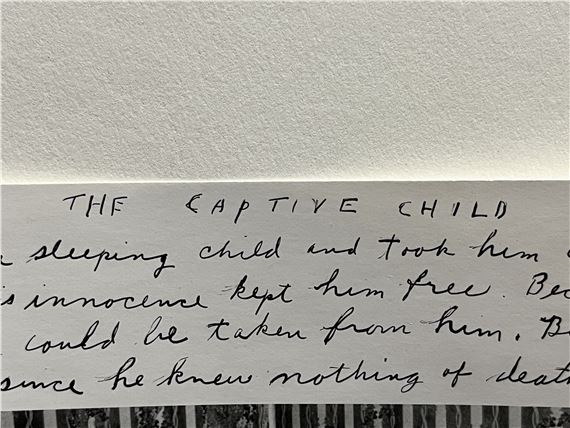 THE CAPTIVE CHILD
sleeping child and took him
innocence kept him free.
could be taken from him.
since he knew nothing of death